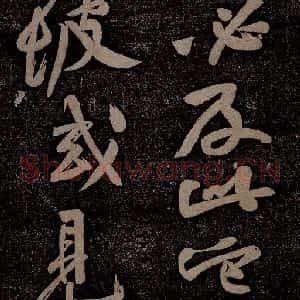 必及此
或見
Shufawang.CN